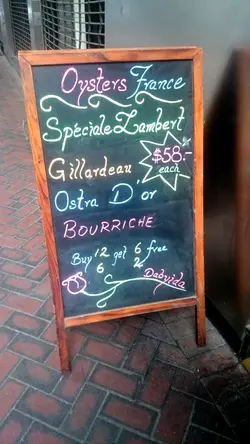 Oysters France
Spéciale Lambert
Gillardeau
$58.-
each
Ostra D'or
BOURRICHE
Buy 12 get 6 free
6 2